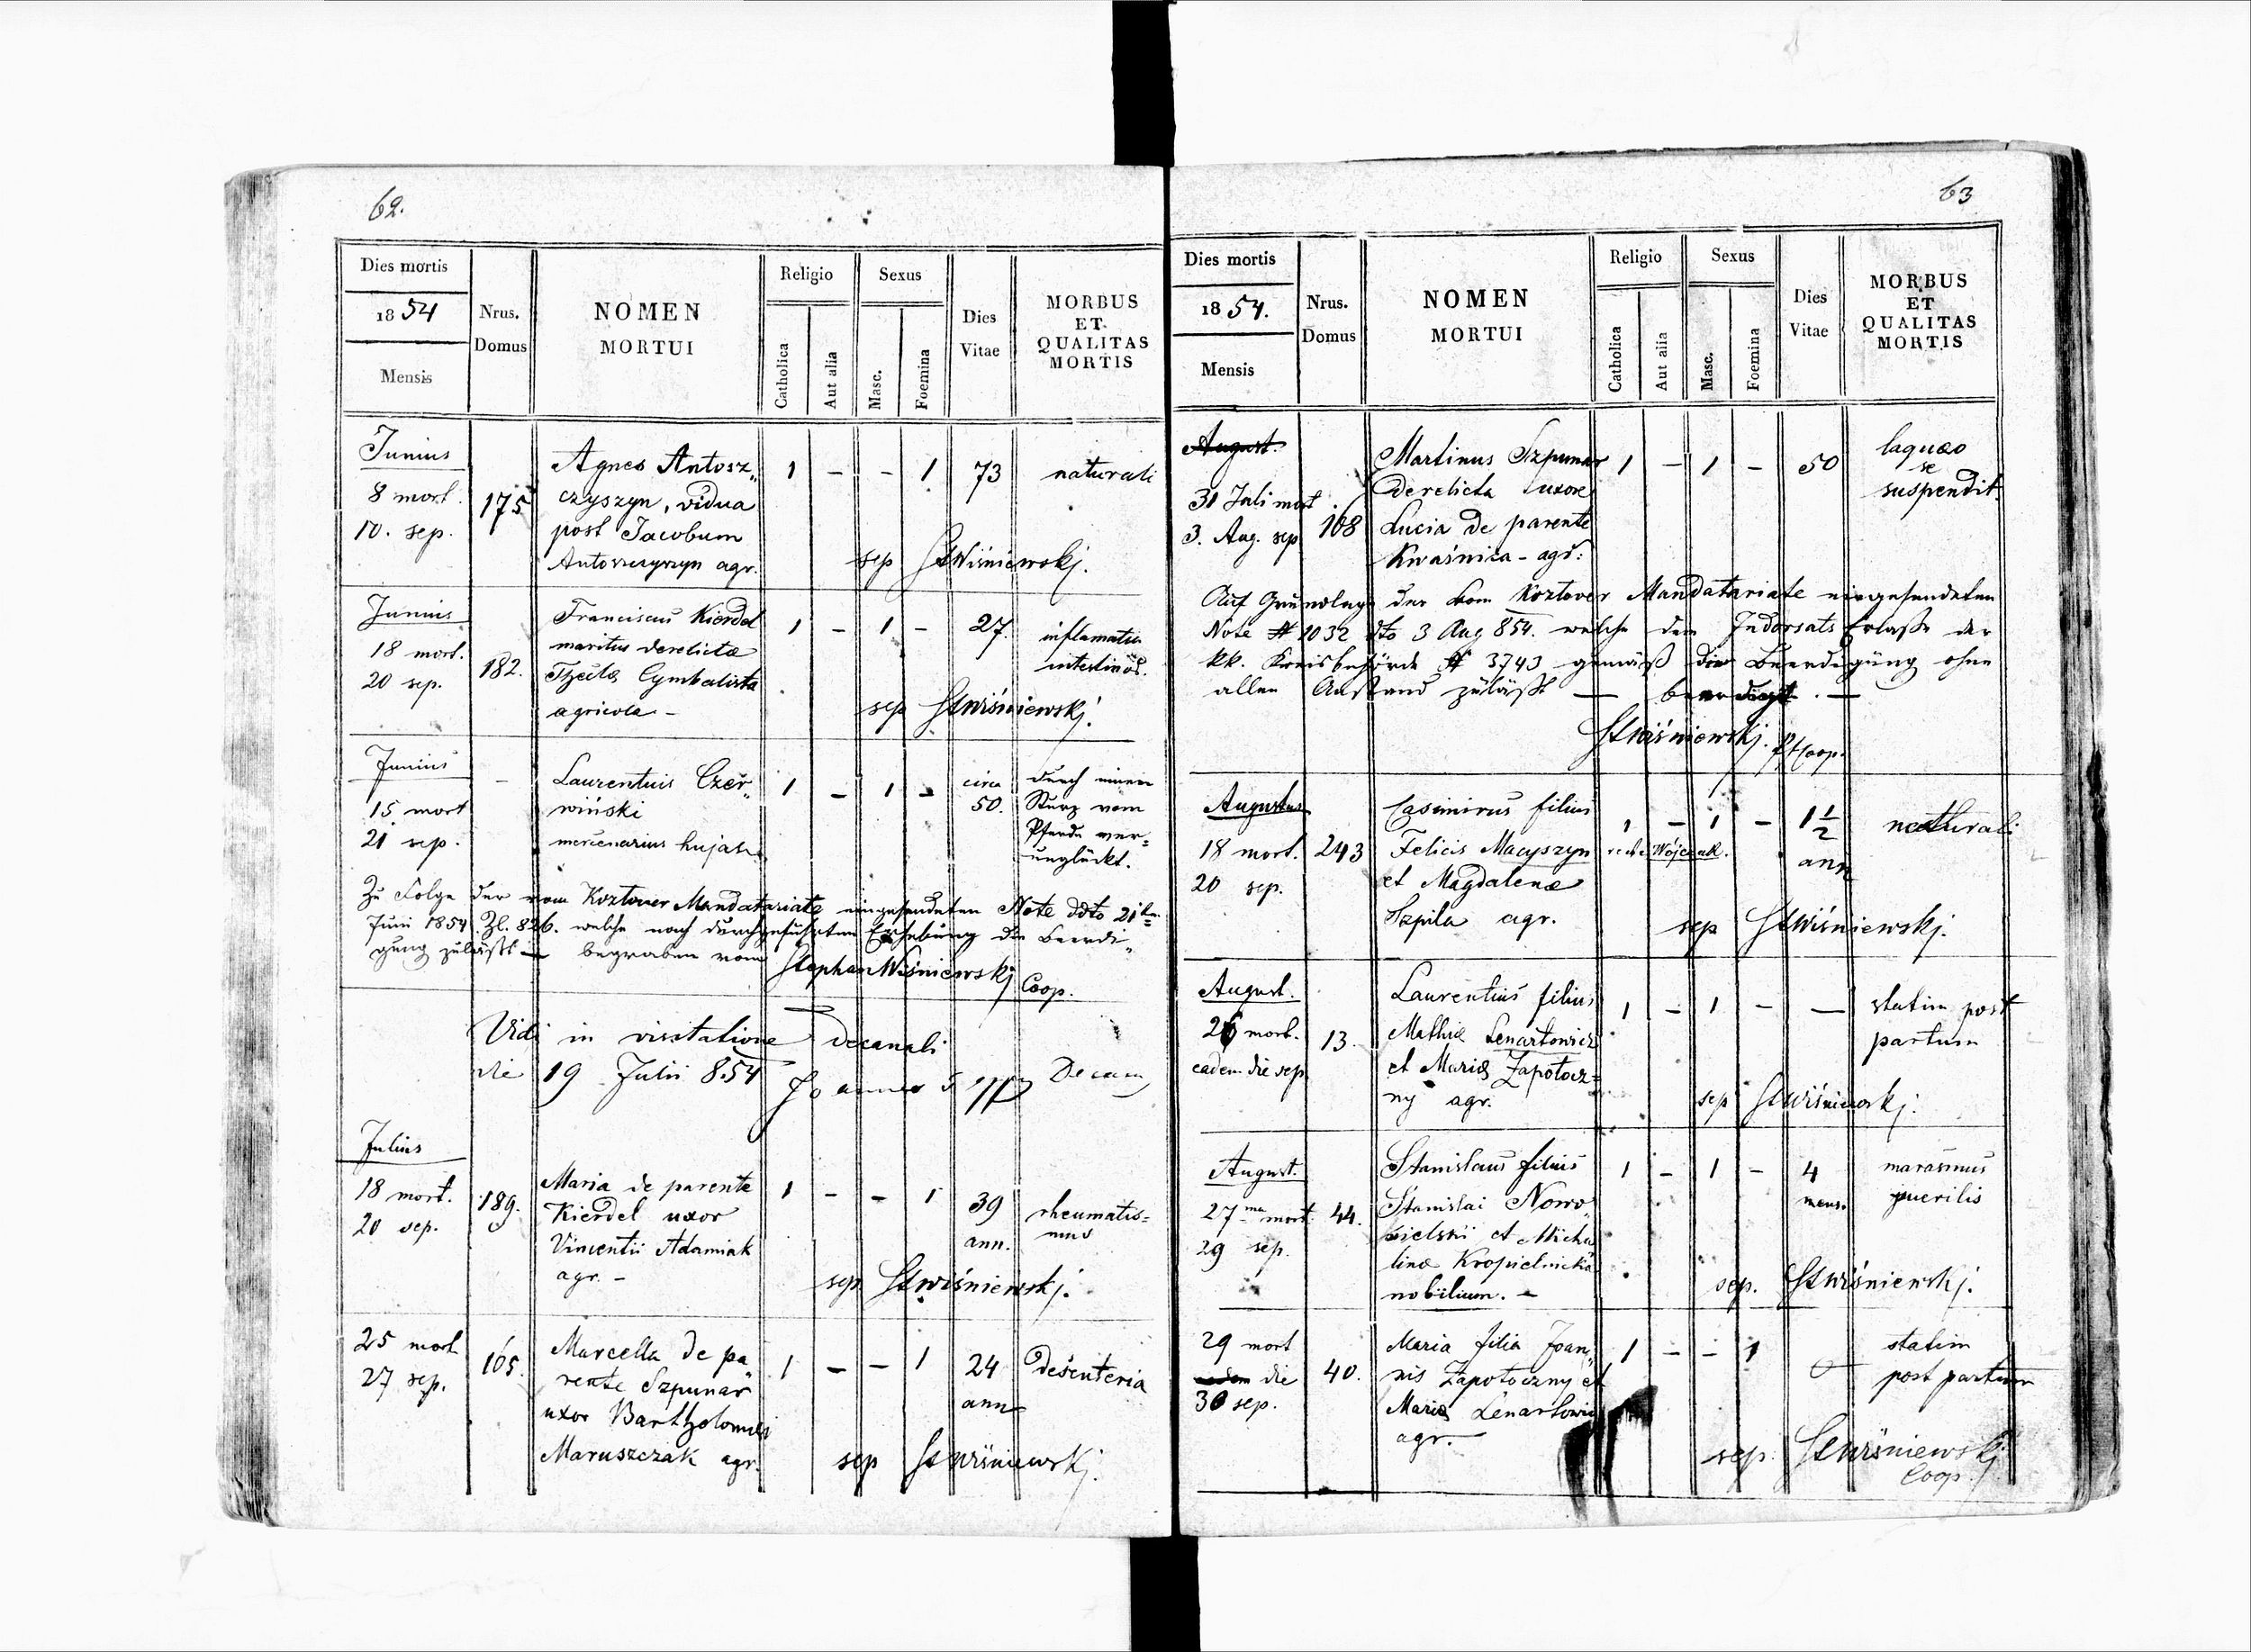 62.
Dies mortis
1854
Mensis
Nrus.
Domus
NOMEN
MORTUI
Religio
Catholica
Aut alia
Sexus
Masc.
Foemina
Dies
Vitae
MORBUS
ET
QUALITAS
MORTIS
Junius
8 mort.
10. sep.
175
Agnes Antosz„
czyszyn, vidua
post Jacobum
Antoszczyszyn agr.
1 - - 1 73 naturali
sep StWiśniewskj.
Junius
18 mort.
20 sep.
182.
Franciscus Kierdel
maritus derelictae
Cymbalista
agricola -
1 - 1 - 27.
inflamatio
intestinor.
sep StWiśniewskj.
Junius
15 mort
21 sep.
-
Laurentius Czer„
wiński
mercenarius hujas
1 - 1 -
circa
50.
durch einen
Sturz vom
Pferde ver=
unglückt.
Zu Folge der vom Koztower Mandatariate eingesendeten Note ddto 21ten
Juni 1854 Zl. 826. welche nach durchgeführten Erhebung die Beerdi„
gung zuläßt — begraben vom Stephan Wiśniewskj
Coop.
Vidi in visitatione decanali
die 19 Julii 854
Decan
Julius
18 mort.
20 sep.
189.
Maria de parente
Kierdel uxor
Vincentii Adamiak
agr. -
1 - - 1
39
ann.
rheumatis=
mus
sep. StWiśniewskj.
25 mort
27 sep.
165.
Marcella de pa„
rente Szpunar
uxor Bartholomei
Maruszczak agr.
1 - - 1
24
ann
desenteria
sep StWiśniewskj.
63
Dies mortis
1854.
Mensis
Nrus.
Domus
NOMEN
MORTUI
Religio
Catholica
Aut alia
Sexus
Masc.
Foemina
Dies
Vitae
MORBUS
ET
QUALITAS
MORTIS
August.
31 Juli mort.
3. Aug. sep
108
Martinus Szpunar
derelicta uxore
Lucia de parente
Kwaśnica - agr:
1 - 1 - 50
laquaeo
se
suspendit
Auf Grundlage der vom Koztower Mandatariate eingesendeten
Note # 1032 dto 3 Aug 854. welche dem Indorsats Erlaße der
kk. Kreisbehörde # 3743 gemäß die Beerdigung ohne
allen Anstand zuläßt — beerdigt. —
StWiśniewskj. Coop.
Augustus
18 mort.
20 sep.
243
Casimirus filius
Felicis Macyszyn recte Wójczuk.
et Magdalenae
Szpila agr.
1 - 1 -
1 1/2
ann
naturali
sep StWiśniewskj.
August.
26 mort.
eadem die sep.
13.
Laurentius filius
Mathiae Lenartowicz
et Mariae Zapotocz=
ny agr.
1 - 1 - —
statim post
partum
sep StWiśniewskj.
August.
27ma mort.
29 sep.
44.
Stanislaus filius
Stanislai Nowo„
sielskii et Micha
linae Kropielnicka
nobilium. -
1 - 1 -
4
mens.
marasmus
puerilis
sep. StWiśniewskj.
29 mort
eadem die
30 sep.
40.
Maria filia Joan„
nis Zapotoczny et
Mariae Lenartowicz
agr. -
1 - - 1
statim
post partum
sep. StWiśniewskj
Coop.